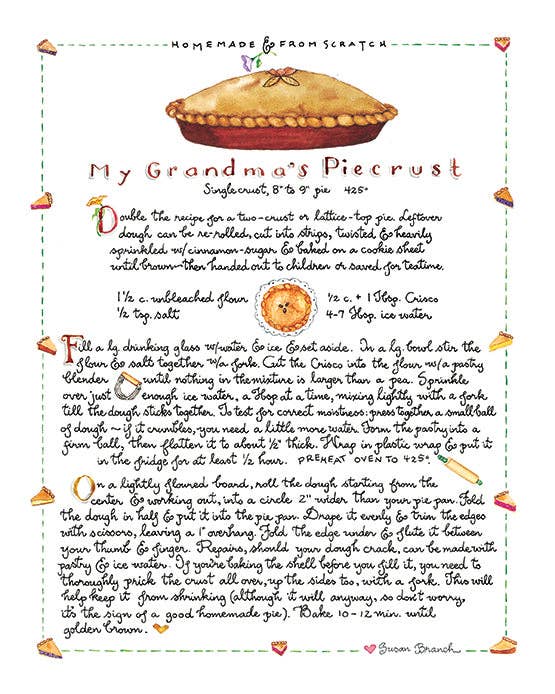 HOMEMADE & FROM SCRATCH
My Grandma's Piecrust
Single crust, 8" to 9" pie 425°
Double the recipe for a two-crust or lattice-top pie. Leftover
dough can be re-rolled, cut into strips, twisted & heavily
sprinkled w/cinnamon-sugar & baked on a cookie sheet
until brown—then handed out to children or saved for teatime.
1 1/2 c. unbleached flour
1/2 c. + 1 Tbsp. Crisco
1/2 tsp. salt
4-7 Tbsp. ice water
Fill a lg. drinking glass w/water & ice & set aside. In a lg. bowl stir the
flour & salt together w/a fork. Cut the Crisco into the flour w/a pastry
blender until nothing in the mixture is larger than a pea. Sprinkle
over just enough ice water, a Tbsp at a time, mixing lightly with a fork
till the dough sticks together. To test for correct moistness: press together a small ball
of dough ~ if it crumbles, you need a little more water. Form the pastry into a
firm ball, then flatten it to about 1/2" thick. Wrap in plastic wrap & put it
in the fridge for at least 1/2 hour. PREHEAT OVEN TO 425°.
On a lightly floured board, roll the dough starting from the
center & working out, into a circle 2" wider than your pie pan. Fold
the dough in half & put it into the pie pan. Drape it evenly & trim the edges
with scissors, leaving a 1" overhang. Fold the edge under & flute it between
your thumb & finger. Repairs, should your dough crack, can be made with
pastry & ice water. If you're baking the shell before you fill it, you need to
thoroughly prick the crust all over, up the sides too, with a fork. This will
help keep it from shrinking (although it will anyway, so don't worry,
it's the sign of a good homemade pie). Bake 10-12 min. until
golden brown.
Susan Branch